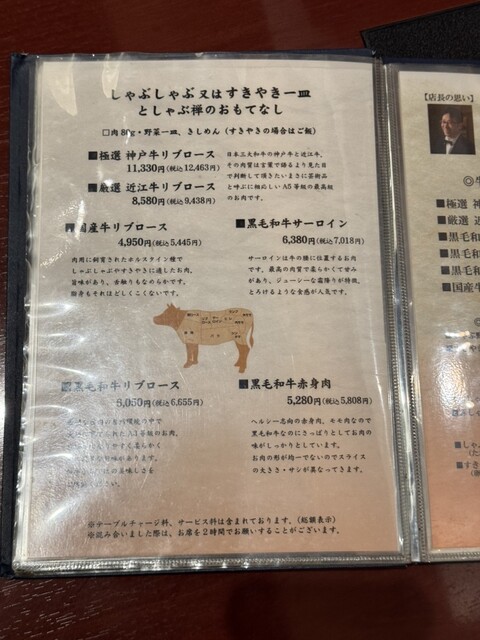 しゃぶしゃぶ又はすきやき一皿
としゃぶ禅のおもてなし
□肉80g・野菜一皿、きしめん(すきやきの場合はご飯)
■極選 神戸牛リブロース
11,330円(税込12,463円)
■厳選 近江牛リブロース
8,580円(税込9,438円)
日本三大和牛の神戸牛と近江牛。
その肉質は言葉で語るより見た目
で判断して頂きたいまさに芸術品
と呼ぶに相応しいA5等級の最高級
のお肉です。
国産牛リブロース
4,950円(税込5,445円)
肉用に飼育されたホルスタイン種で
しゃぶしゃぶやすきやきに適したお肉。
旨みがあり、舌触りもなめらかです。
脂身もそれほどしつこくないです。
■黒毛和牛サーロイン
6,380円(税込7,018円)
サーロインは牛の腰に位置するお肉
です。最高の肉質で柔らかくて甘み
があり、ジューシーな霜降りが特徴。
とろけるような食感が人気です。
黒毛和牛リブロース
6,050円(税込6,655円)
■黒毛和牛赤身肉
5,280円(税込5,808円)
ヘルシー志向の赤身肉。モモ肉なので
黒毛和牛なのにさっぱりとしてお肉の
味がしっかりとしています。
お肉の形が均一でないのでスライス
の大きさ・サシが異なってきます。
※テーブルチャージ料、サービス料は含まれております。(総額表示)
※混み合いました際は、お席を2時間でお願いすることがございます。
【店長の思い】
■極選 神
■厳選 近
■黒毛和
■黒毛和
■黒毛和
■国産牛